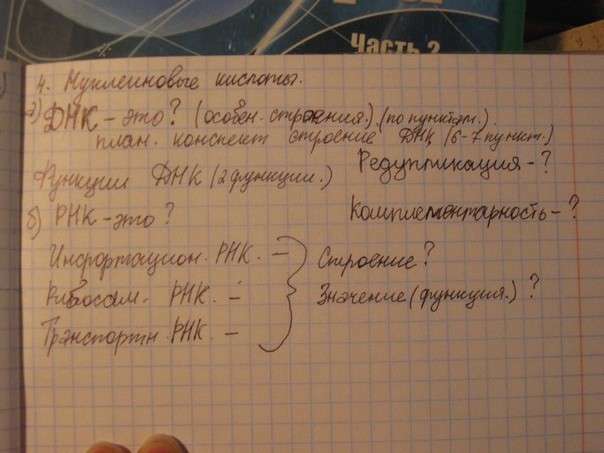 Часть 2
4. Нуклеиновые кислоты.
а) ДНК - это? (особен. строения.) (по пунктам.)
план. конспект строение ДНК (6-7 пункт.)
Функции ДНК (2 функции.) Редупликация - ?
б) РНК - это? Комплементарность - ?
Информацион. РНК. - Строение?
Рибосом. РНК. - Значение (функция.)?
Транспортн. РНК. -